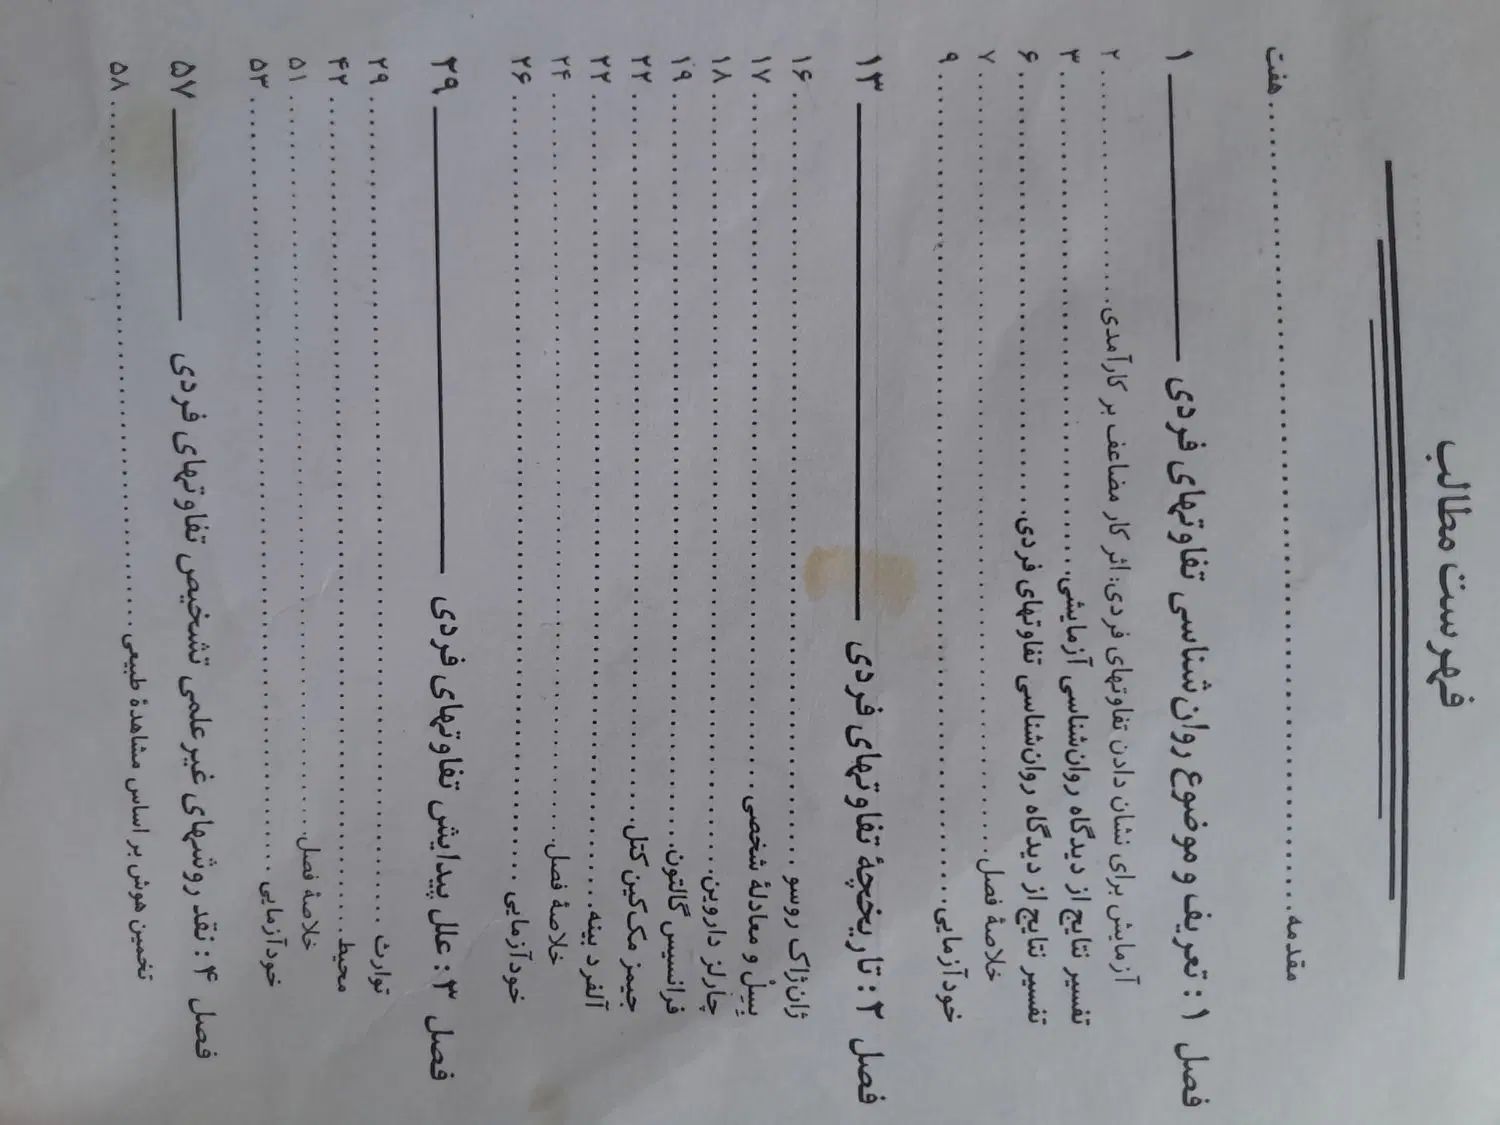 فهرست مطالب
مقدمه ..... هفت
فصل ۱: تعریف و موضوع روان‌شناسی تفاوتهای فردی ۱
آزمایش برای نشان دادن تفاوتهای فردی: اثر کار مضاعف بر کارآمدی ..... ۲
تفسیر نتایج از دیدگاه روان‌شناسی آزمایشی ..... ۳
تفسیر نتایج از دیدگاه روان‌شناسی تفاوتهای فردی ..... ۶
خلاصهٔ فصل ..... ۷
خودآزمایی ..... ۹
فصل ۲: تاریخچهٔ تفاوتهای فردی ۱۳
ژان‌ژاک روسو ..... ۱۶
بِسِلْ و معادلهٔ شخصی ..... ۱۷
چارلز داروین ..... ۱۸
فرانسیس گالتون ..... ۱۹
جیمز مک‌کین کتل ..... ۲۲
آلفرد بینه ..... ۲۲
خلاصهٔ فصل ..... ۲۴
خودآزمایی ..... ۲۶
فصل ۳: علل پیدایش تفاوتهای فردی ۲۹
توارث ..... ۲۹
محیط ..... ۴۲
خلاصهٔ فصل ..... ۵۱
خودآزمایی ..... ۵۳
فصل ۴: نقد روشهای غیرعلمی تشخیص تفاوتهای فردی ۵۷
تخمین هوش بر اساس مشاهدهٔ طبیعی ..... ۵۸